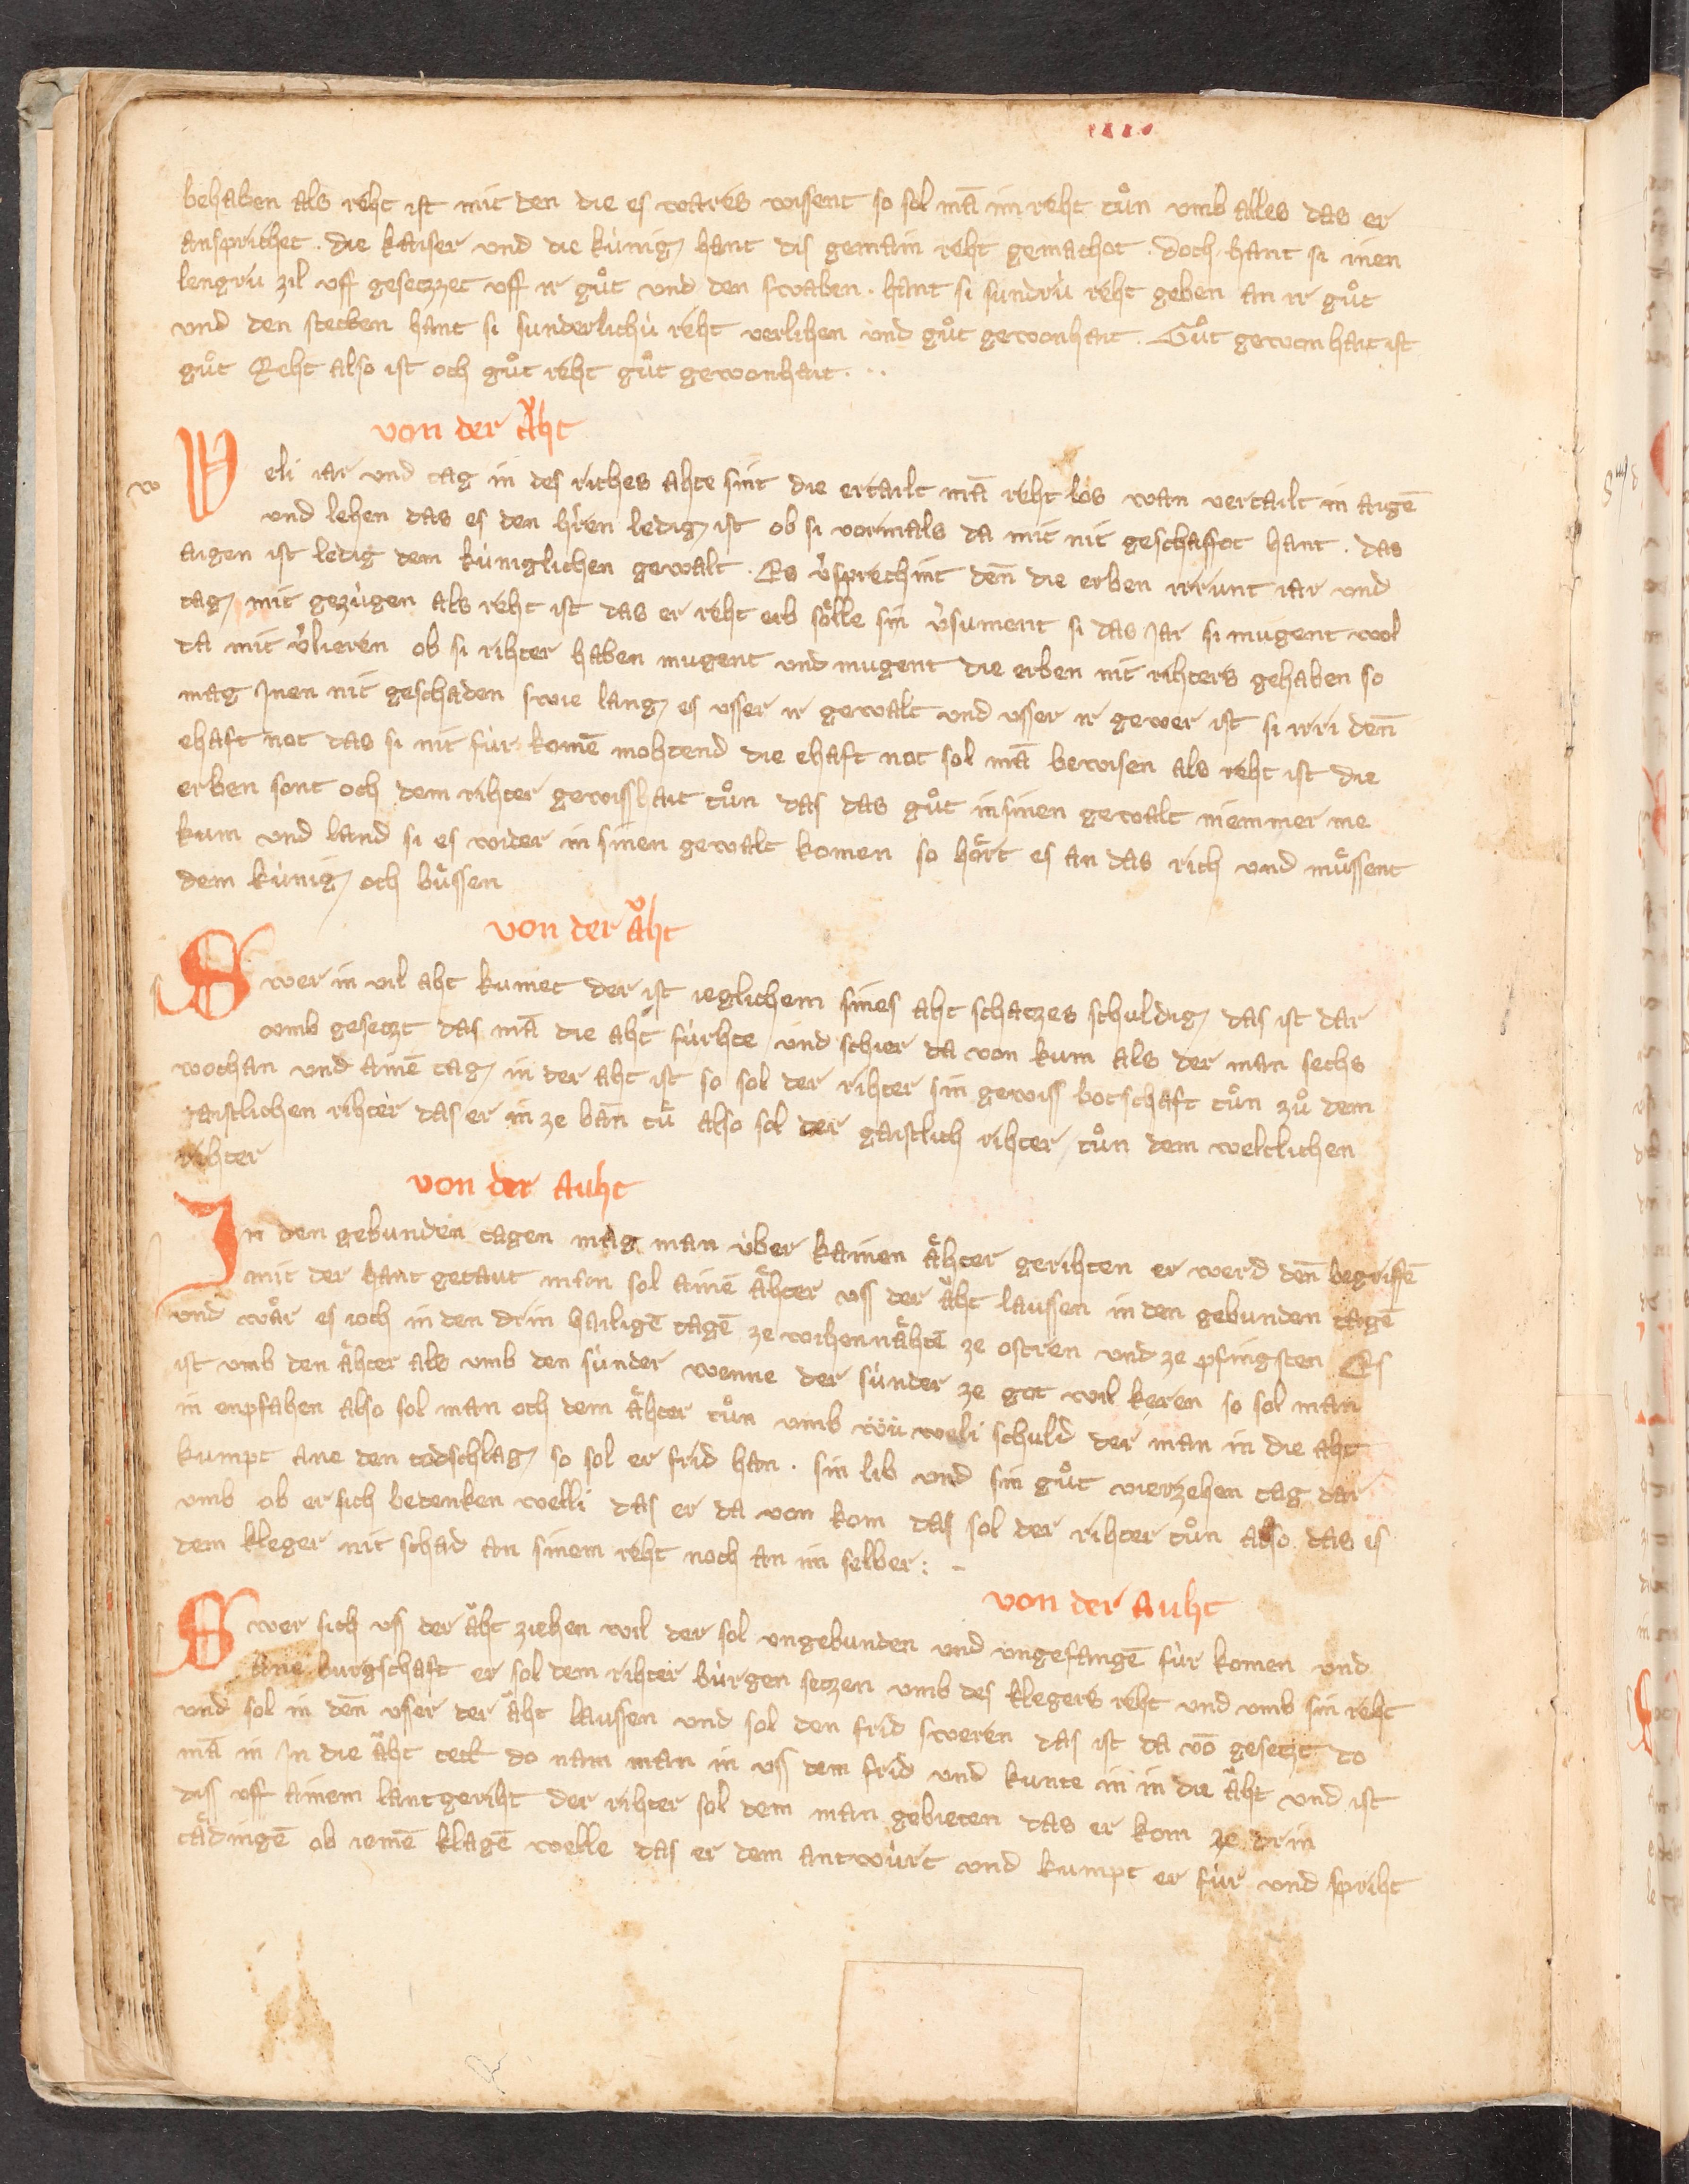 behaben als reht ist mit den die es wares wissent so sol mā im reht tůn vmb alles das er
ansprichet . die kaiser vnd die kúnig hant dis gemain reht gemachot . doch hant si inen
lengrú zil vff gesetzzet vff ir gůt vnd den swaben . hant si sundrú reht geben an ir gůt
vnd den stetten hant si sunderlichú reht verlihen vnd gůt gewonhait . Gůt gewonhait ist
gůt Reht also ist och gůt reht gůt gewonhait . . .
von der Åht
w Weli iar vnd tag in des riches ahte sint die ertailt mā reht los wan vertailt in aigē
vnd lehen das es den hʼren ledig ist ob si vormals da mit nit geschaffot hant . das
aigen ist ledig dem kúniglichen gewalt . Es vʼsprechint den̄ die erben irrunt iar vnd
tag mit gezúgen als reht ist das er reht erb sölle sin vʼsument si das Jar si mugent wol
da mit vʼlieren ob si rihter haben mugent vnd mugent die erben nit rihters gehaben so
mag Jnen nit geschaden swie lang es vsser ir gewalt vnd vsser ir gewer ist si irri den̄
ehaft not das si nit fúr komē mohtend die ehaft not sol mā bewisen als reht ist die
erben sont och dem rihter gewisshait tůn das das gůt in sinen gewalt niemmer me
kum vnd land si es wider in sinen gewalt komen so hört es an das rich vnd müssent
dem kúnig och büssen
von der åht
Swer in vil aht kumet der ist ieglichem sines aht schatzes schuldig das ist dar
vmb gesetzt das mā die aht fúrhte vnd schier da von kum als der man sechs
wochan vnd ainē tag in der aht ist so sol der rihter sin gewiss botschaft tůn zů dem
gaistlichen rihter das er in ze ban̄ tů also sol der gaistlich rihter tůn dem weltlichen
rihter
von der auht
In den gebunden tagen mag man úber kainen ähter gerihten er werd den̄ begriffē
mit der hant getaut man sol ainē ähter vss der åht laussen in den gebunden tagē
vnd wår es ioch in den drin hailigē tagē ze wihennähtē ze ostren vnd ze pfingsten Es
ist vmb den ähter als vmb den súnder wenne der súnder ze got wil keren so sol man
in enpfahen also sol man och dem ähter tůn vmb wú weli schuld der man in die aht
kumpt ane den todschlag so sol er frid han . sin lib vnd sin gůt vierzehen tag dar
vmb ob er sich bedenken welli das er da von kom das sol der rihter tůn also das es
dem kleger nit schad an sinem reht noch an im selber : -
von der auht
Swer sich vss der åht ziehen wil der sol vngebunden vnd vngefangē fúr komen vnd
ane burgschaft er sol dem rihter búrgen setzen vmb des klegers reht vnd vmb sin reht
vnd sol in den̄ vsser der åht laussen vnd sol den frid sweren das ist da vō gesetzt do
mā in Jn die åht tett do nam man in vss dem frid vnd kunte in in die åht vnd ist
dis vff ainem lantgeriht der rihter sol dem man gebieten das er kom ze drin
tädingē ob iemē klagē welle das er dem antwúrt vnd kumpt er fúr vnd spriht